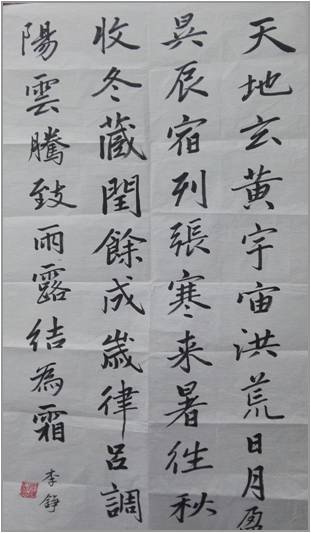 天地玄黃宇宙洪荒日月盈
昃辰宿列張寒来暑往秋
收冬藏閏餘成歲律呂調
陽雲騰致雨露結為霜
李錚